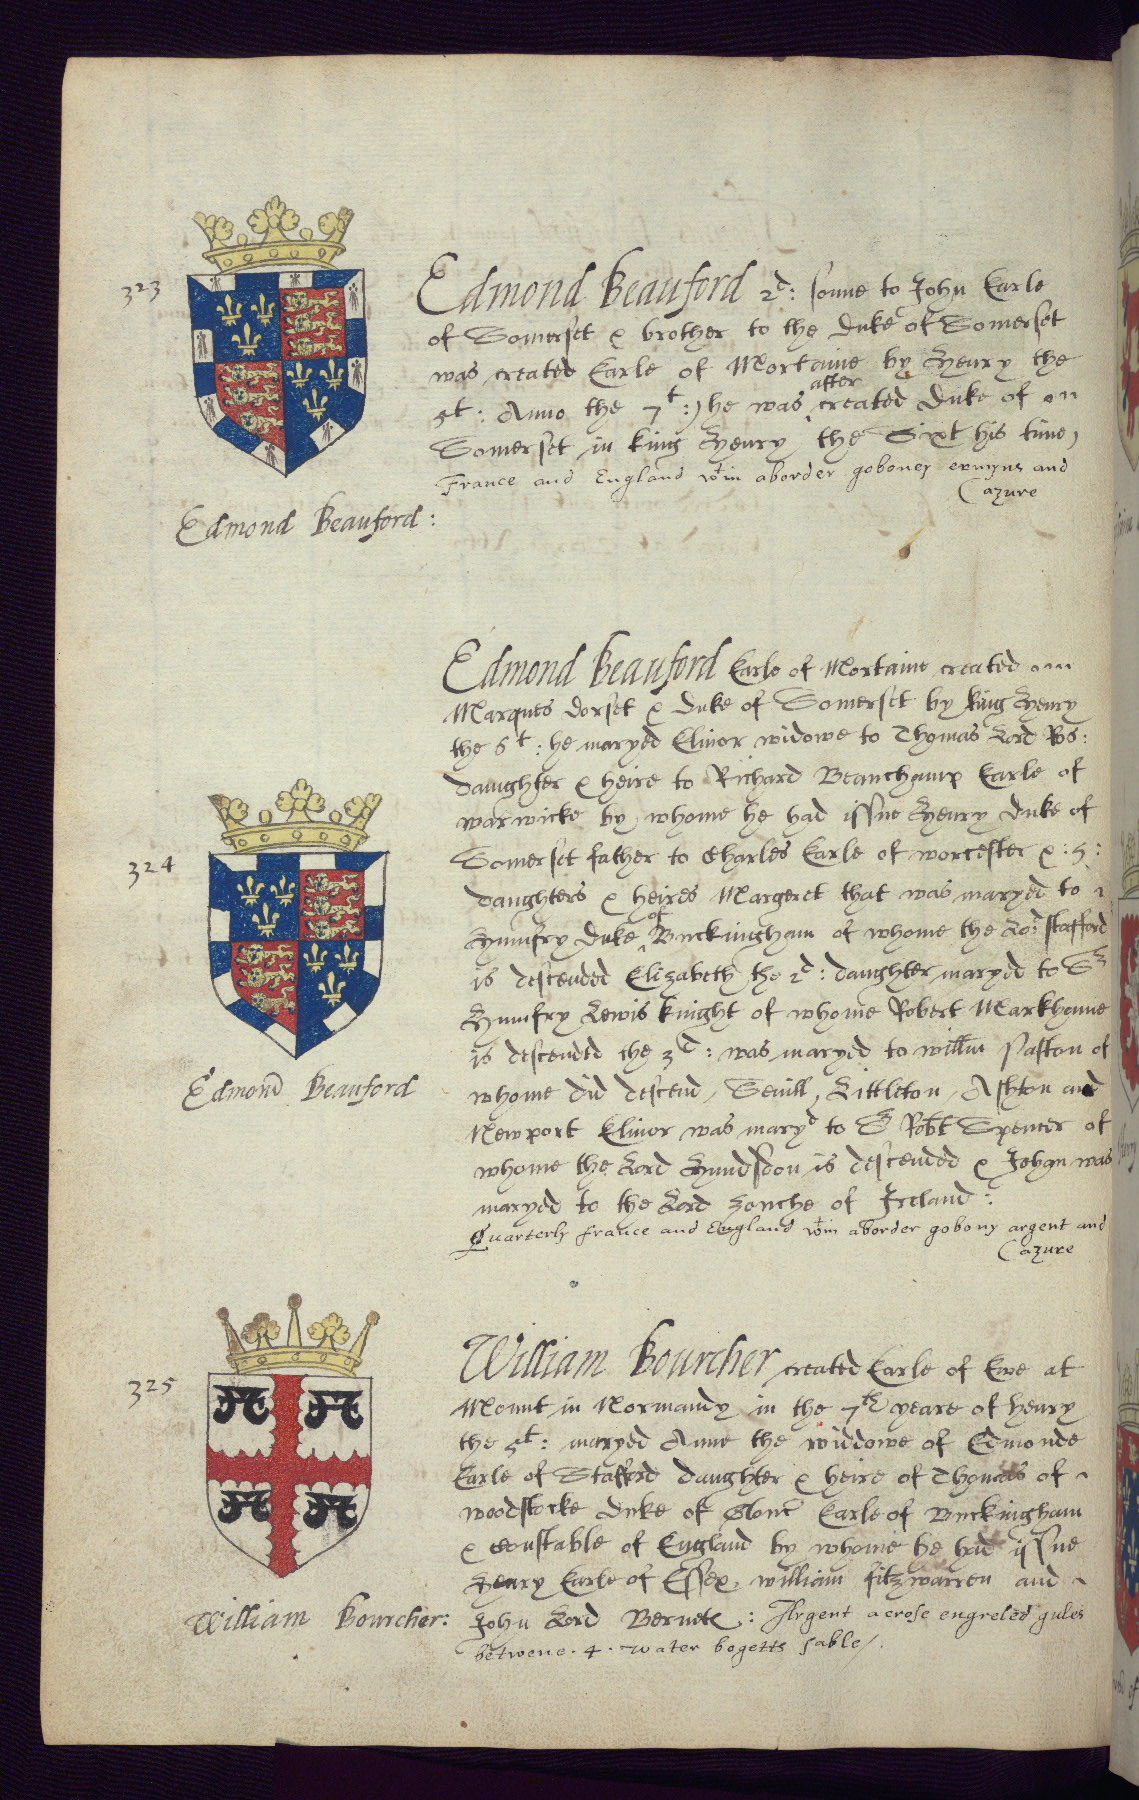 323
Edmond Beauford 2d: sonne to John Earle
of Somerset & brother to the Duke of Somerset
was created Earle of Mortaine by Henry the
5t: Anno the 7t: he was after created Duke of
Somerset in king Henry the Sixt his time
France and England wtin aborder goboney ermyns and
azure
Edmond Beauford:
Edmond Beauford Earle of Mortaine created
Marques dorset & Duke of Somerset by king Henry
the 6t: he maryed Elinor widowe to Thomas Lord Ros:
daughter & heire to Richard Beauchamp Earle of
warwicke by whome he had issue Henry Duke of
324
Somerset father to Charles Earle of worcester & :5:
daughters & heires Margeret that was maryed to
Humfry Duke of Buckingham of whome the Lo: stafford
is descended Elizabeth the 2d: daughter maryed to Sr
Humfry Lewis knight of whome Robert Markhame
is descended the 3d: was maryed to willm Paston of
Edmond Beauford
whome did descend, Sevill, Littleton, Ashton and
Newport Elinor was maryd to Sr Robt Spencer of
whome the Lord Hundsdon is descended & Johan was
maryed to the Lord Zouche of Ireland:
Quarterly france and England wtin aborder gobony argent and
azure
325
William Bourcher created Earle of Ewe at
Mount in Normandy in the 7th yeare of henry
the 5t: maryed Anne the widdowe of Edmonde
Earle of Stafford daughter & heire of Thomas of
woodstocke Duke of Glouc Earle of Buckingham
& Constable of England by whome he had issue
Henry Earle of Essex, william fitzwarren and
William Bourcher:
John Lord Berners: Argent a crose engreled gules
betwene .4. water bogetts sable/.